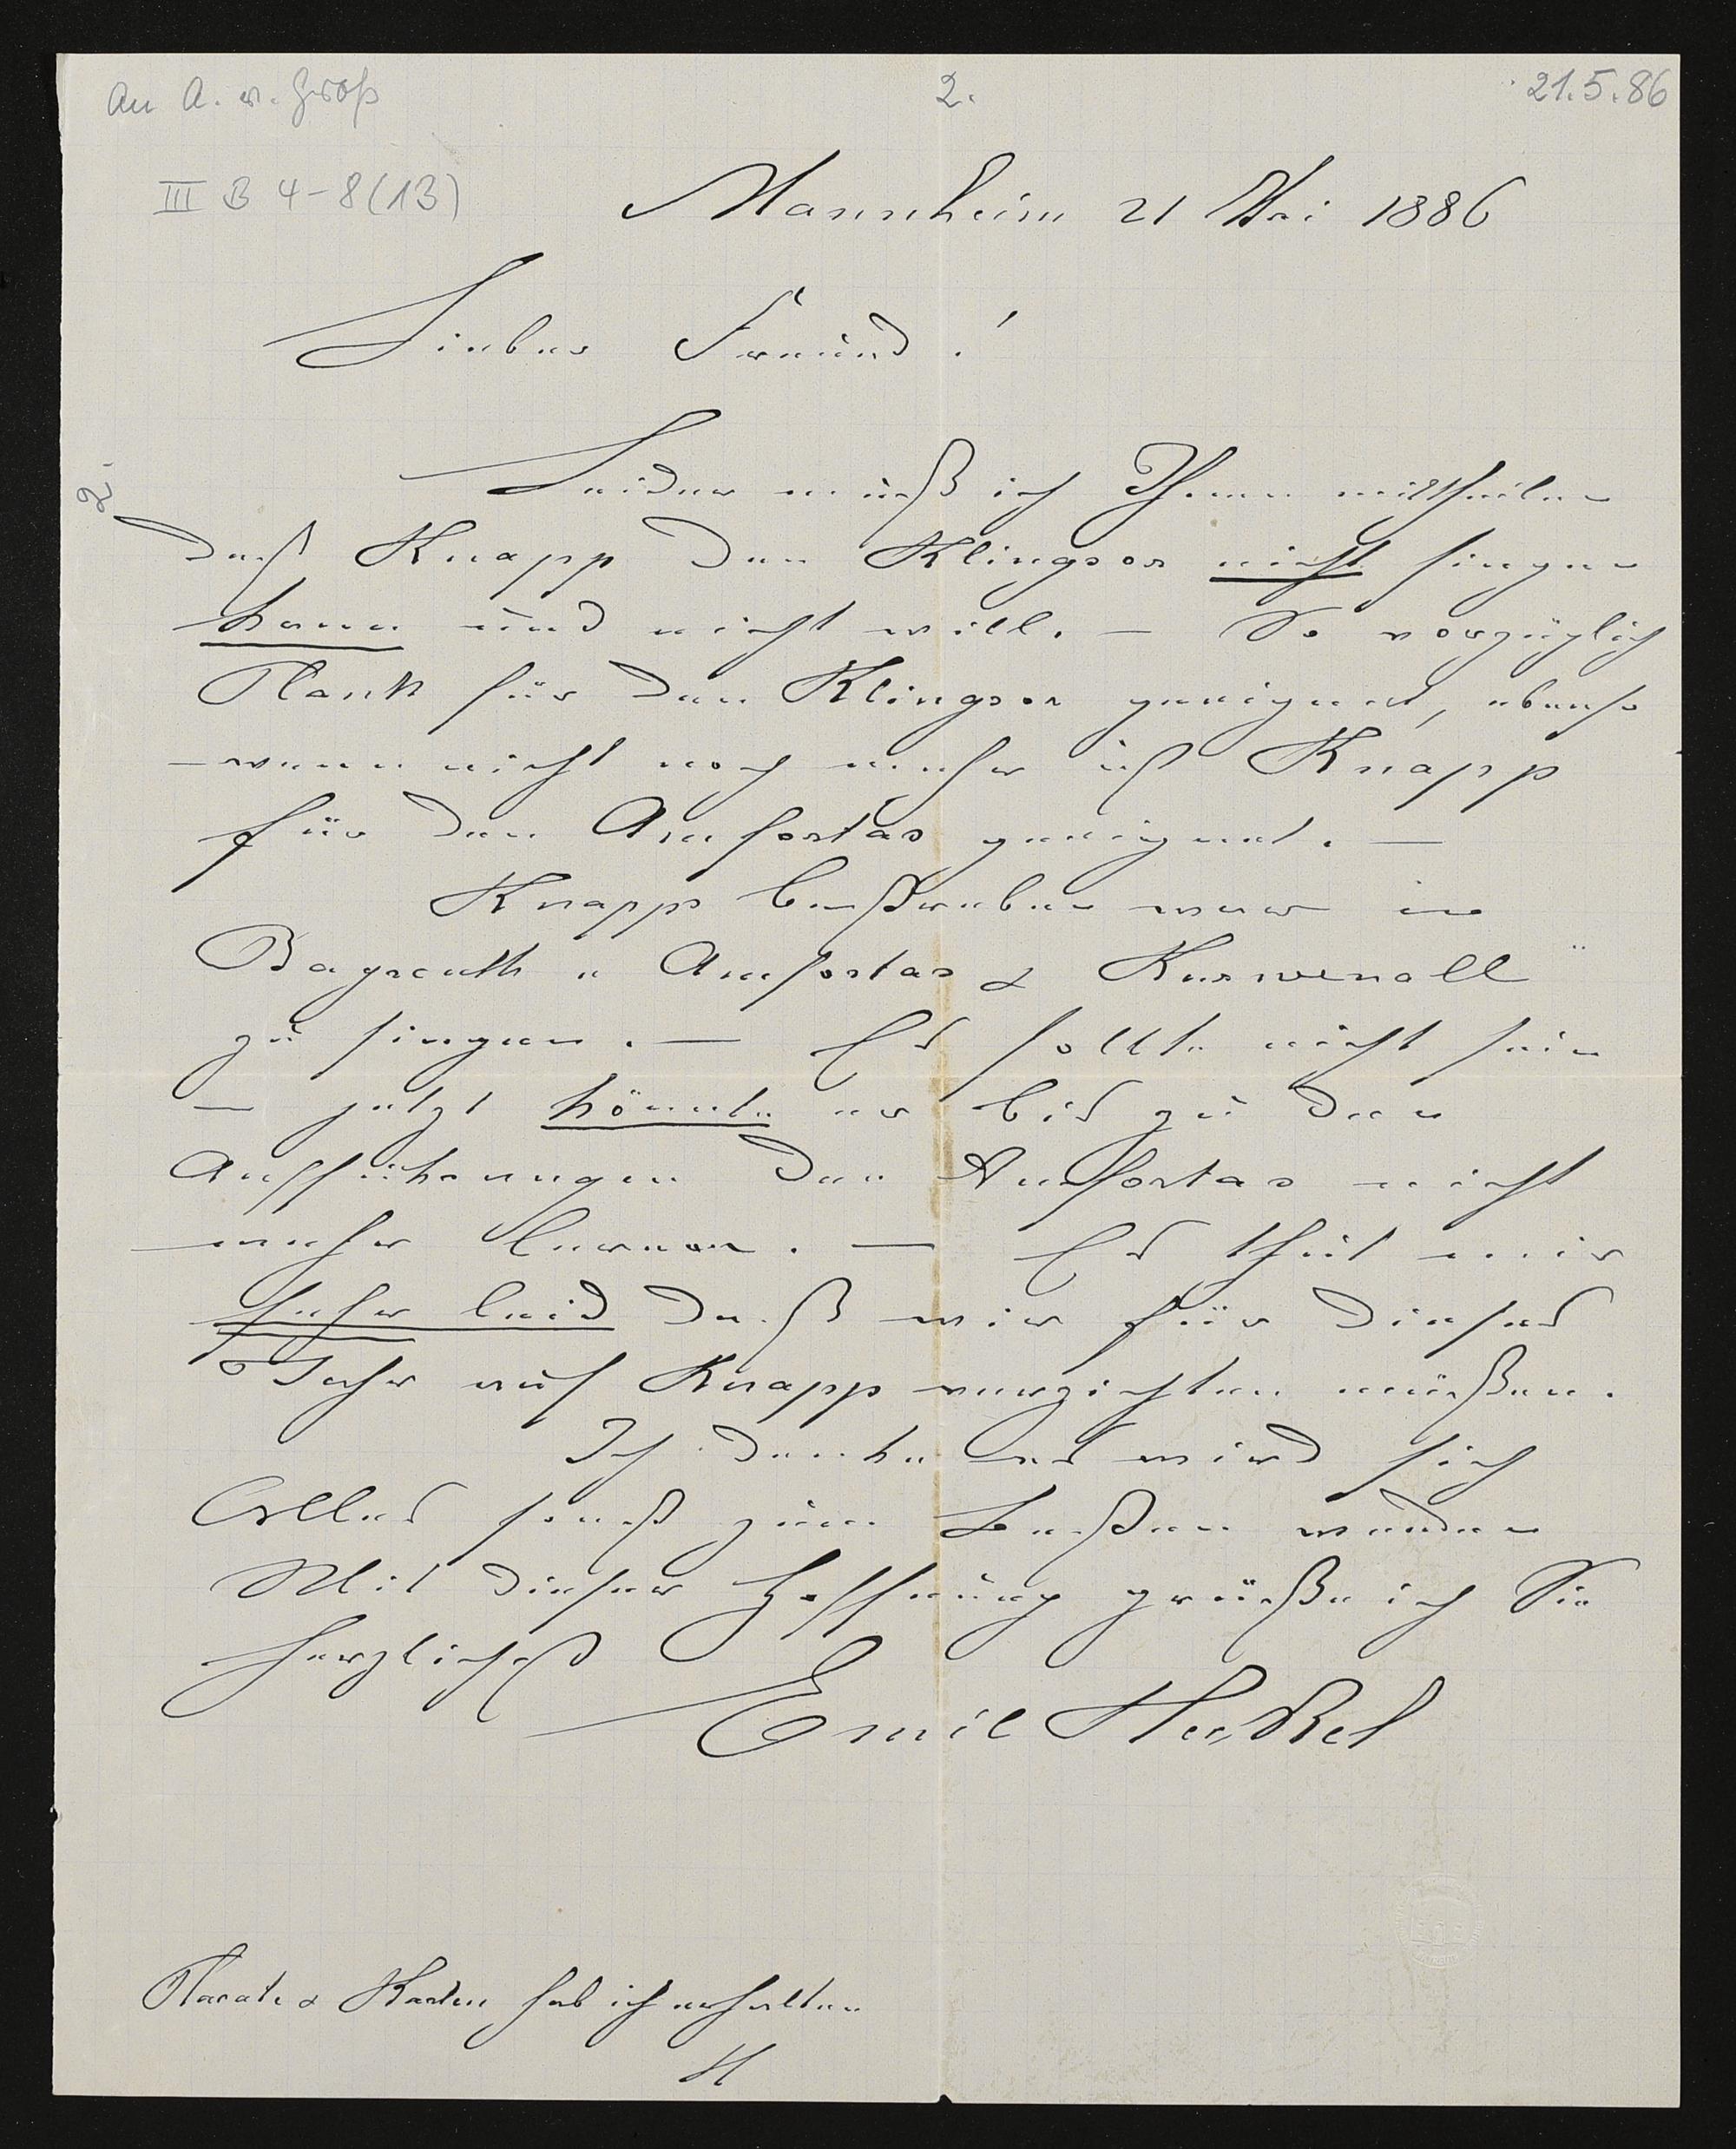 An A. v. Groß
2.
21.5.86
III B 4-8(13)
Mannheim 21 Mai 1886
Lieber Freund!
Leider muß ich Ihnen mittheilen
2.
daß Knapp den Klingsor nicht singen
kann und nicht will. — So vorzüglich
Plank für den Klingsor geeignet, ebenso
— wenn nicht noch mehr ist Knapp
für den Amfortas geeignet. —
Knapps Bestreben war in
Bayreuth „Amfortas & Kurwenall“
zu singen. — Es sollte nicht sein
— jetzt könnte er bis zu den
Aufführungen den Amfortas nicht
mehr lernen. — Es thut mir
sehr leid daß wir für dieses
Jahr auf Knapp verzichten müßen.
Ich denke es wird sich
Alles sonst zum Besten wenden
Mit dieser Hoffnung grüße ich Sie
herzlichst
Emil Heckel
Placate & Karten hab ich erhalten
H